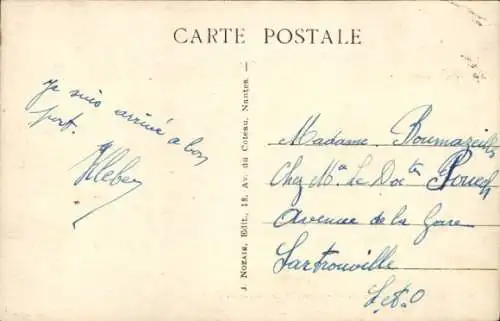 CARTE POSTALE
Je suis arrivé a bon
port.
Kleber
J. Nozais, Edit., 18, Av. du Coteau, Nantes.
Madame
Chez Mr Le Doctr
Avenue de la Gare
Sartrouville
S.&.O